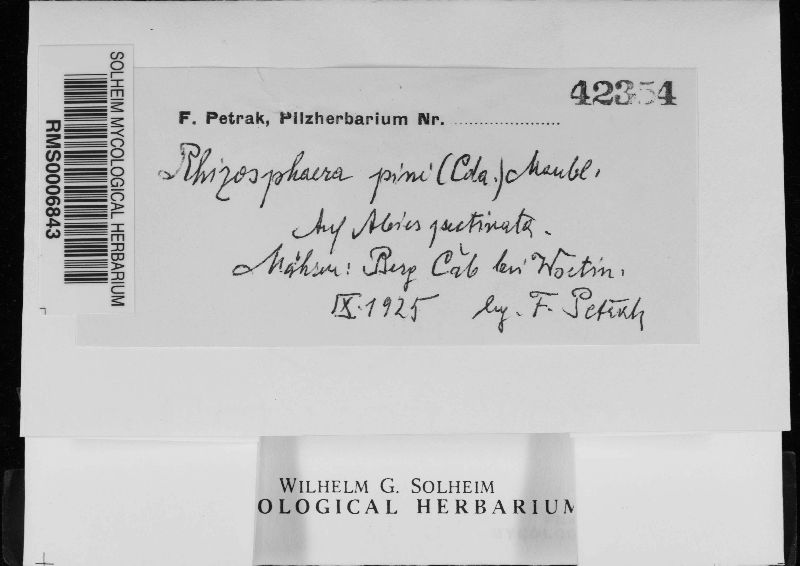 SOLHEIM MYCOLOGICAL HERBARIUM
RMS0006843
42354
F. Petrak, Pilzherbarium Nr.
Rhizosphaera pini (Cda.) Maubl.
Auf Abies pectinata.
Mähren: Berg Čáb bei Wsetin.
IX. 1925 leg. F. Petrak
WILHELM G. SOLHEIM
OLOGICAL HERBARIUM